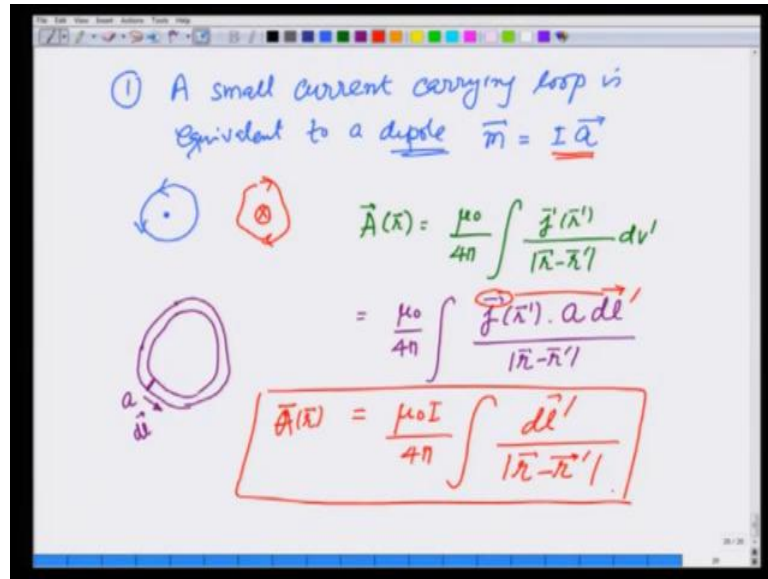 File Edit View Insert Actions Tools Help
① A small current carrying loop is
equivalent to a dipole m⃗ = I a⃗
A⃗(r⃗) = μ₀/4π ∫ j⃗'(r⃗')/|r⃗-r⃗'| dv'
= μ₀/4π ∫ j⃗(r⃗') . a dl⃗'/|r⃗-r⃗'|
a
dl⃗
A⃗(r⃗) = μ₀I/4π ∫ dl⃗'/|r⃗-r⃗'|